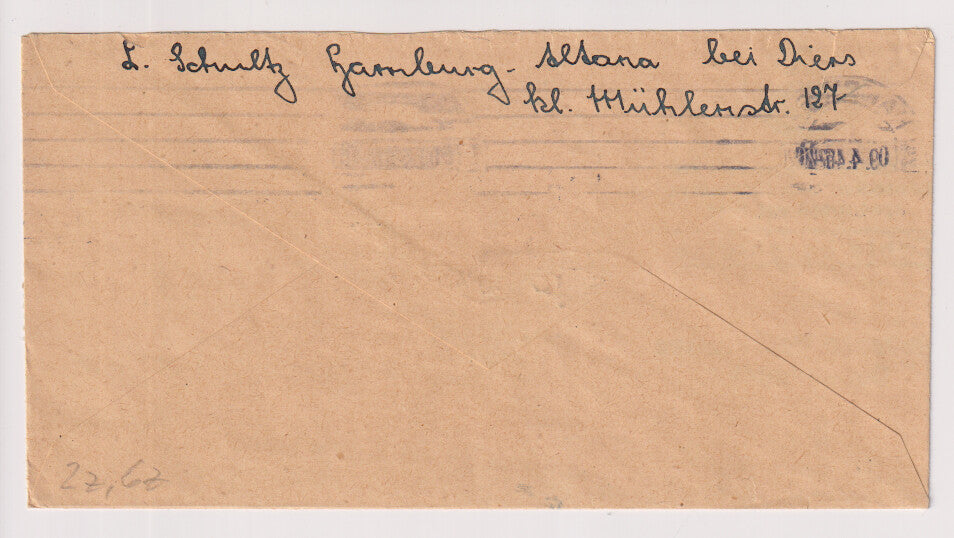 L. Schultz Hamburg-Altona bei Diers
kl. Mühlenstr. 127
2z, 6z